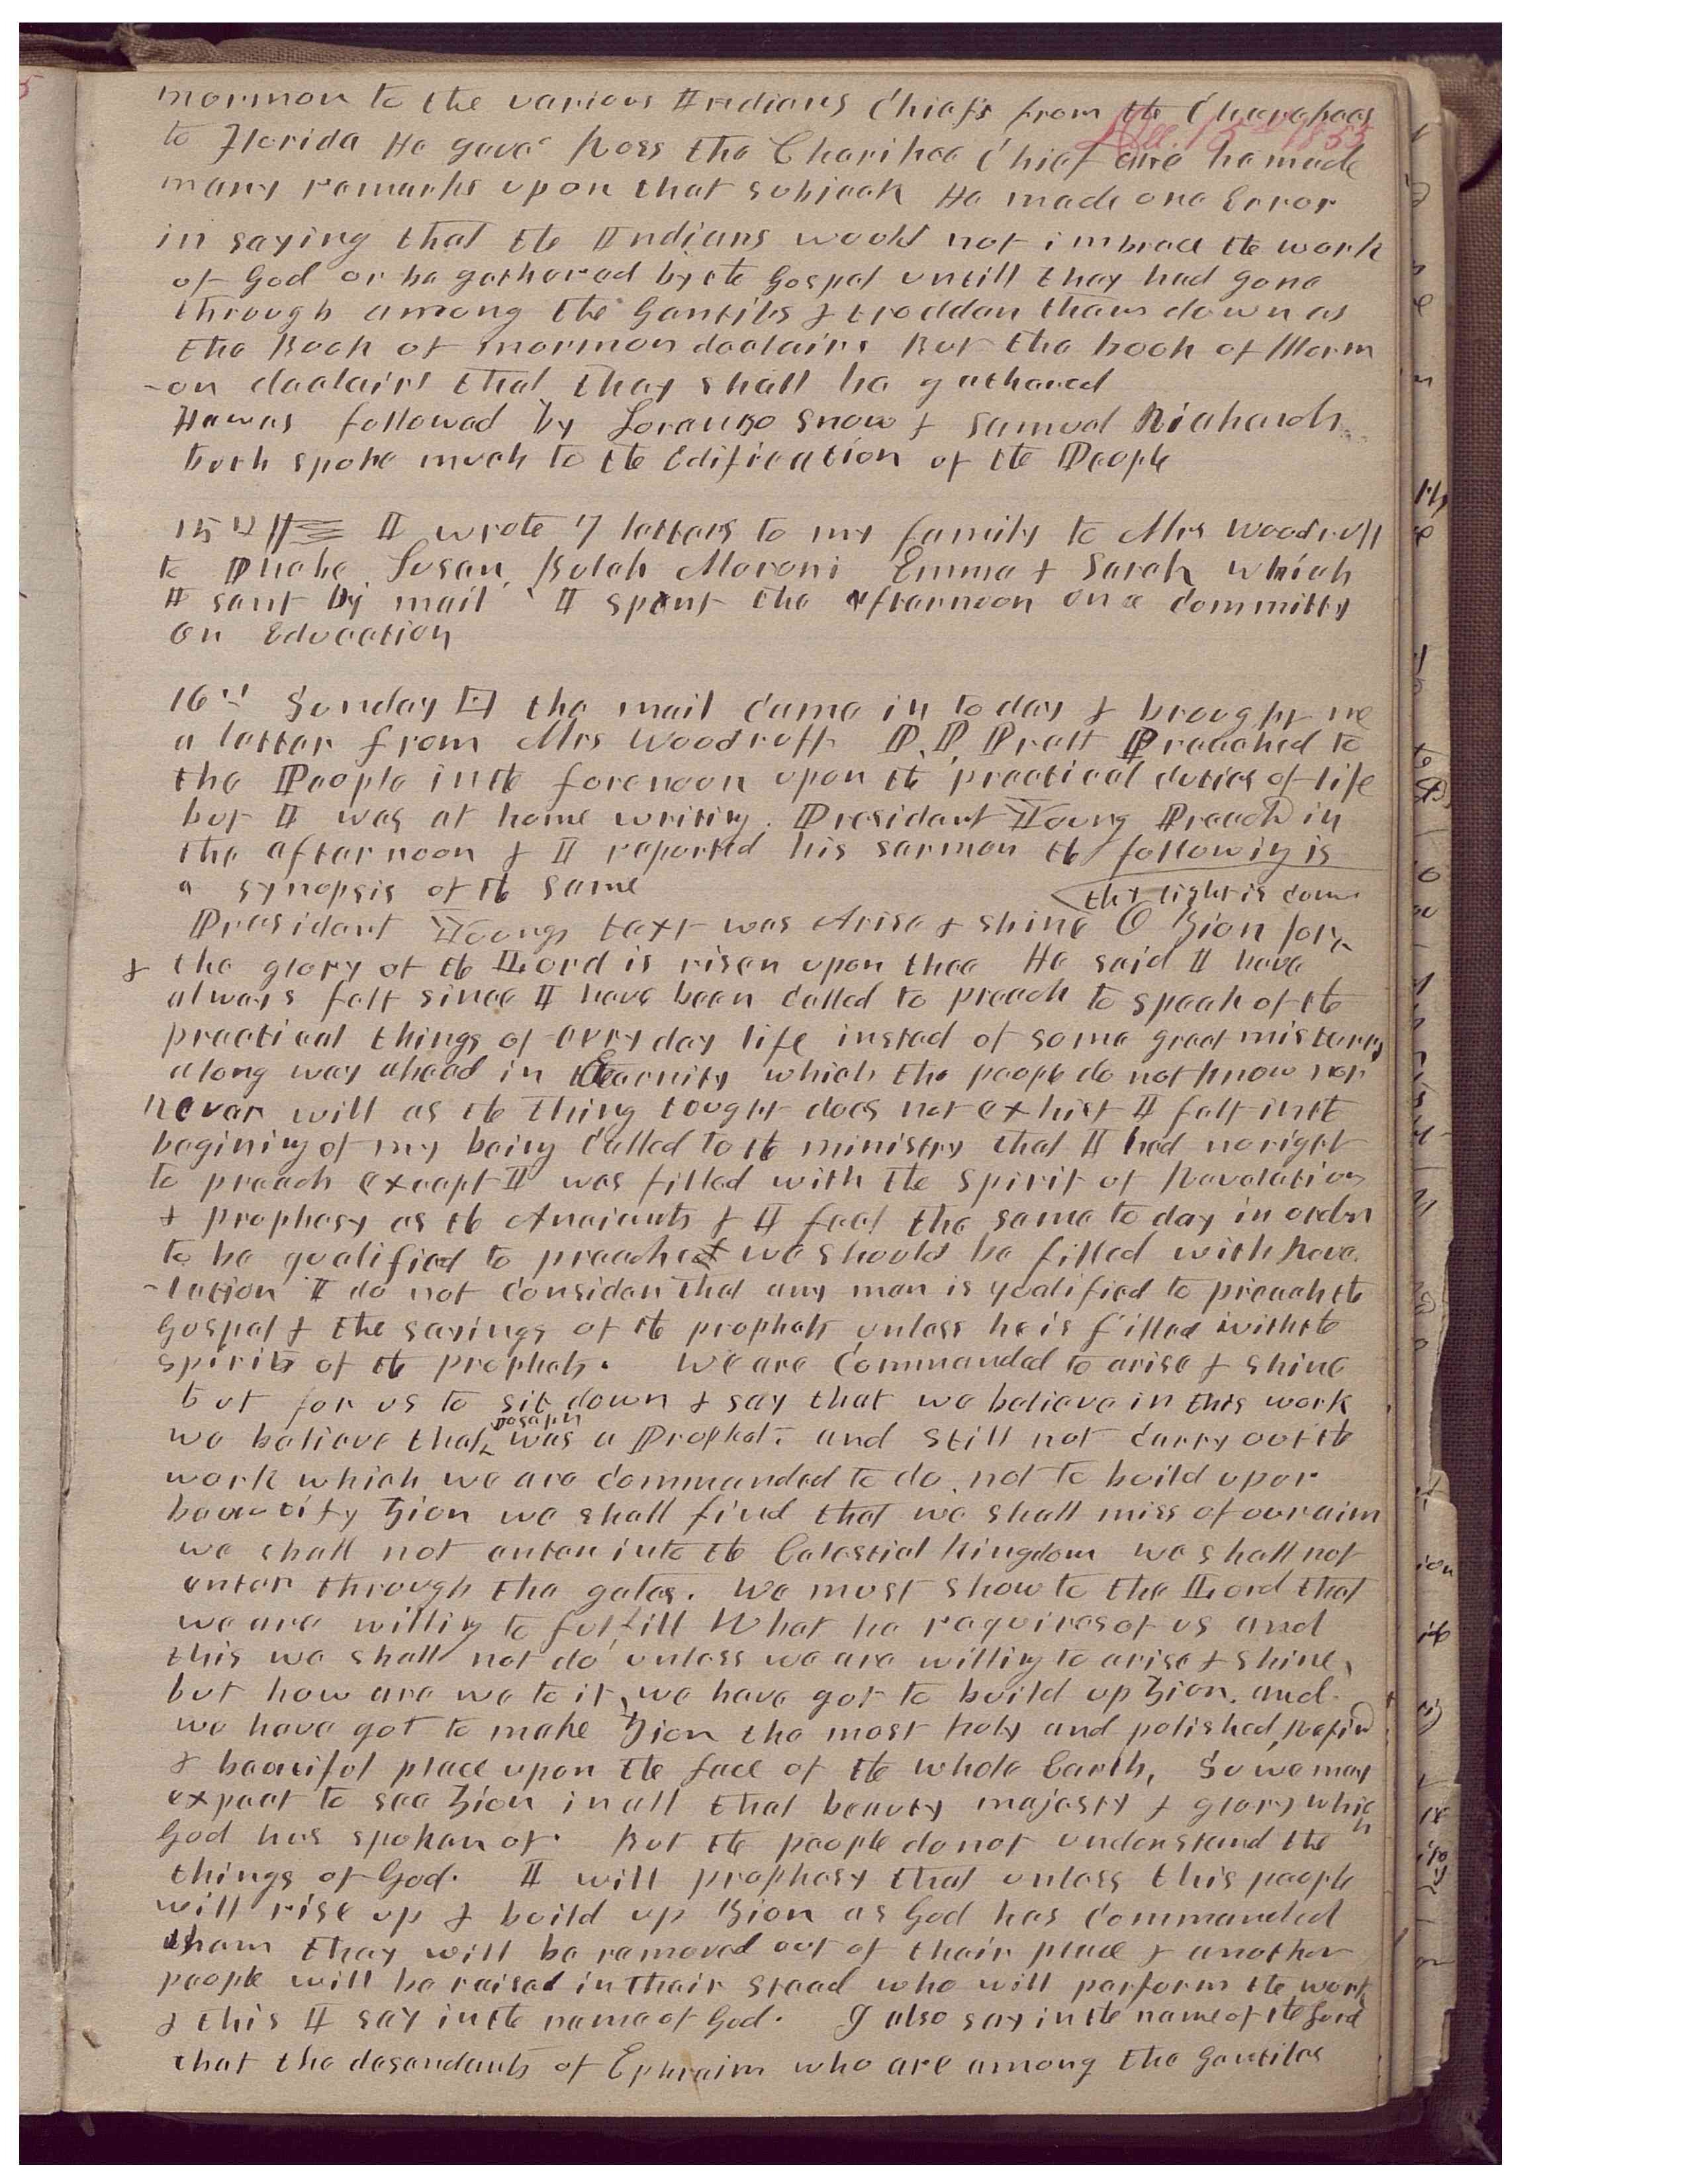 mormon to the various Indians Chiefs from the Cherokees
Dec. 15th 1855
to Florida He gave Ross the Charikee Chief one he made
many remarks upon that subjeck He made one Error
in saying that the Indians would not imbrace the work
of God or be gathered by the Gospel untill they had gone
through among the Gentiles & trodden them down as
the Book of mormon declairs But the book of Morm
-on declairs that they shall be gathered
He was followed by Loranzo Snow & Samuel Richards
both spoke much to the Edification of the People
15th I wrote 7 letters to my family to Mrs Woodruff
to Phebe, Susan, Bulah Moroni Emma & Sarah which
I sent by mail I spent the afternoon on a committy
on Education
16th Sunday the mail came in to day & brought me
a letter from Mrs Woodruff. P. P. Pratt Preached to
the People in the forenoon upon the practical duties of life
but I was at home writing. President Young Preach in
the afternoon & I reported his sermon the following is
a synopsis of the same
thy light is come
President Youngs text was Arise & shine O Zion for ^
& the glory of the Lord is risen upon thee He said I have
always felt since I have been called to preach to speak of the
practical things of evry day life instad of some great mistery
along way ahead in Eternity which the people do not know nor
never will as the thing tought does not exhist I felt in the
begining of my being called to the ministry that I had no right
to preach except I was filled with the spirit of Revelation
& prophesy as the Anciants & I feel the same to day in order
to be qualified to preach we should be filled with Reve
-lation I do not consider that any man is qualified to preach the
Gospel & the sayings of the prophets unless he is filled with the
spirits of the prophets. We are commanded to arise & shine
but for us to sit down & say that we believe in this work
Joseph
we believe that ^ was a Prophet. and still not carry out the
work which we are commanded to do not to build up or
beautify Zion we shall find that we shall miss of our aim
we shall not enter into the Celestial kingdom we shall not
enter through the gates. We must show to the Lord that
we are willing to fulfill what he requires of us and
this we shall not do unless we are willing to arise & shine,
but how are we to it, we have got to build up Zion. and
we have got to make Zion the most holy and polished, Refind
& beautiful place upon the face of the whole Earth, So we may
expect to see Zion in all that beauty majesty & glory which
God has spoken of. But the people do not understand the
things of God. I will prophesy that unless this people
will rise up & build up Zion as God has commanded
them they will be removed out of their place & another
people will be raised in their stead who will perform the work
& this I say in the name of God. I also say in the name of the Lord
that the desendants of Ephraim who are among the gentiles